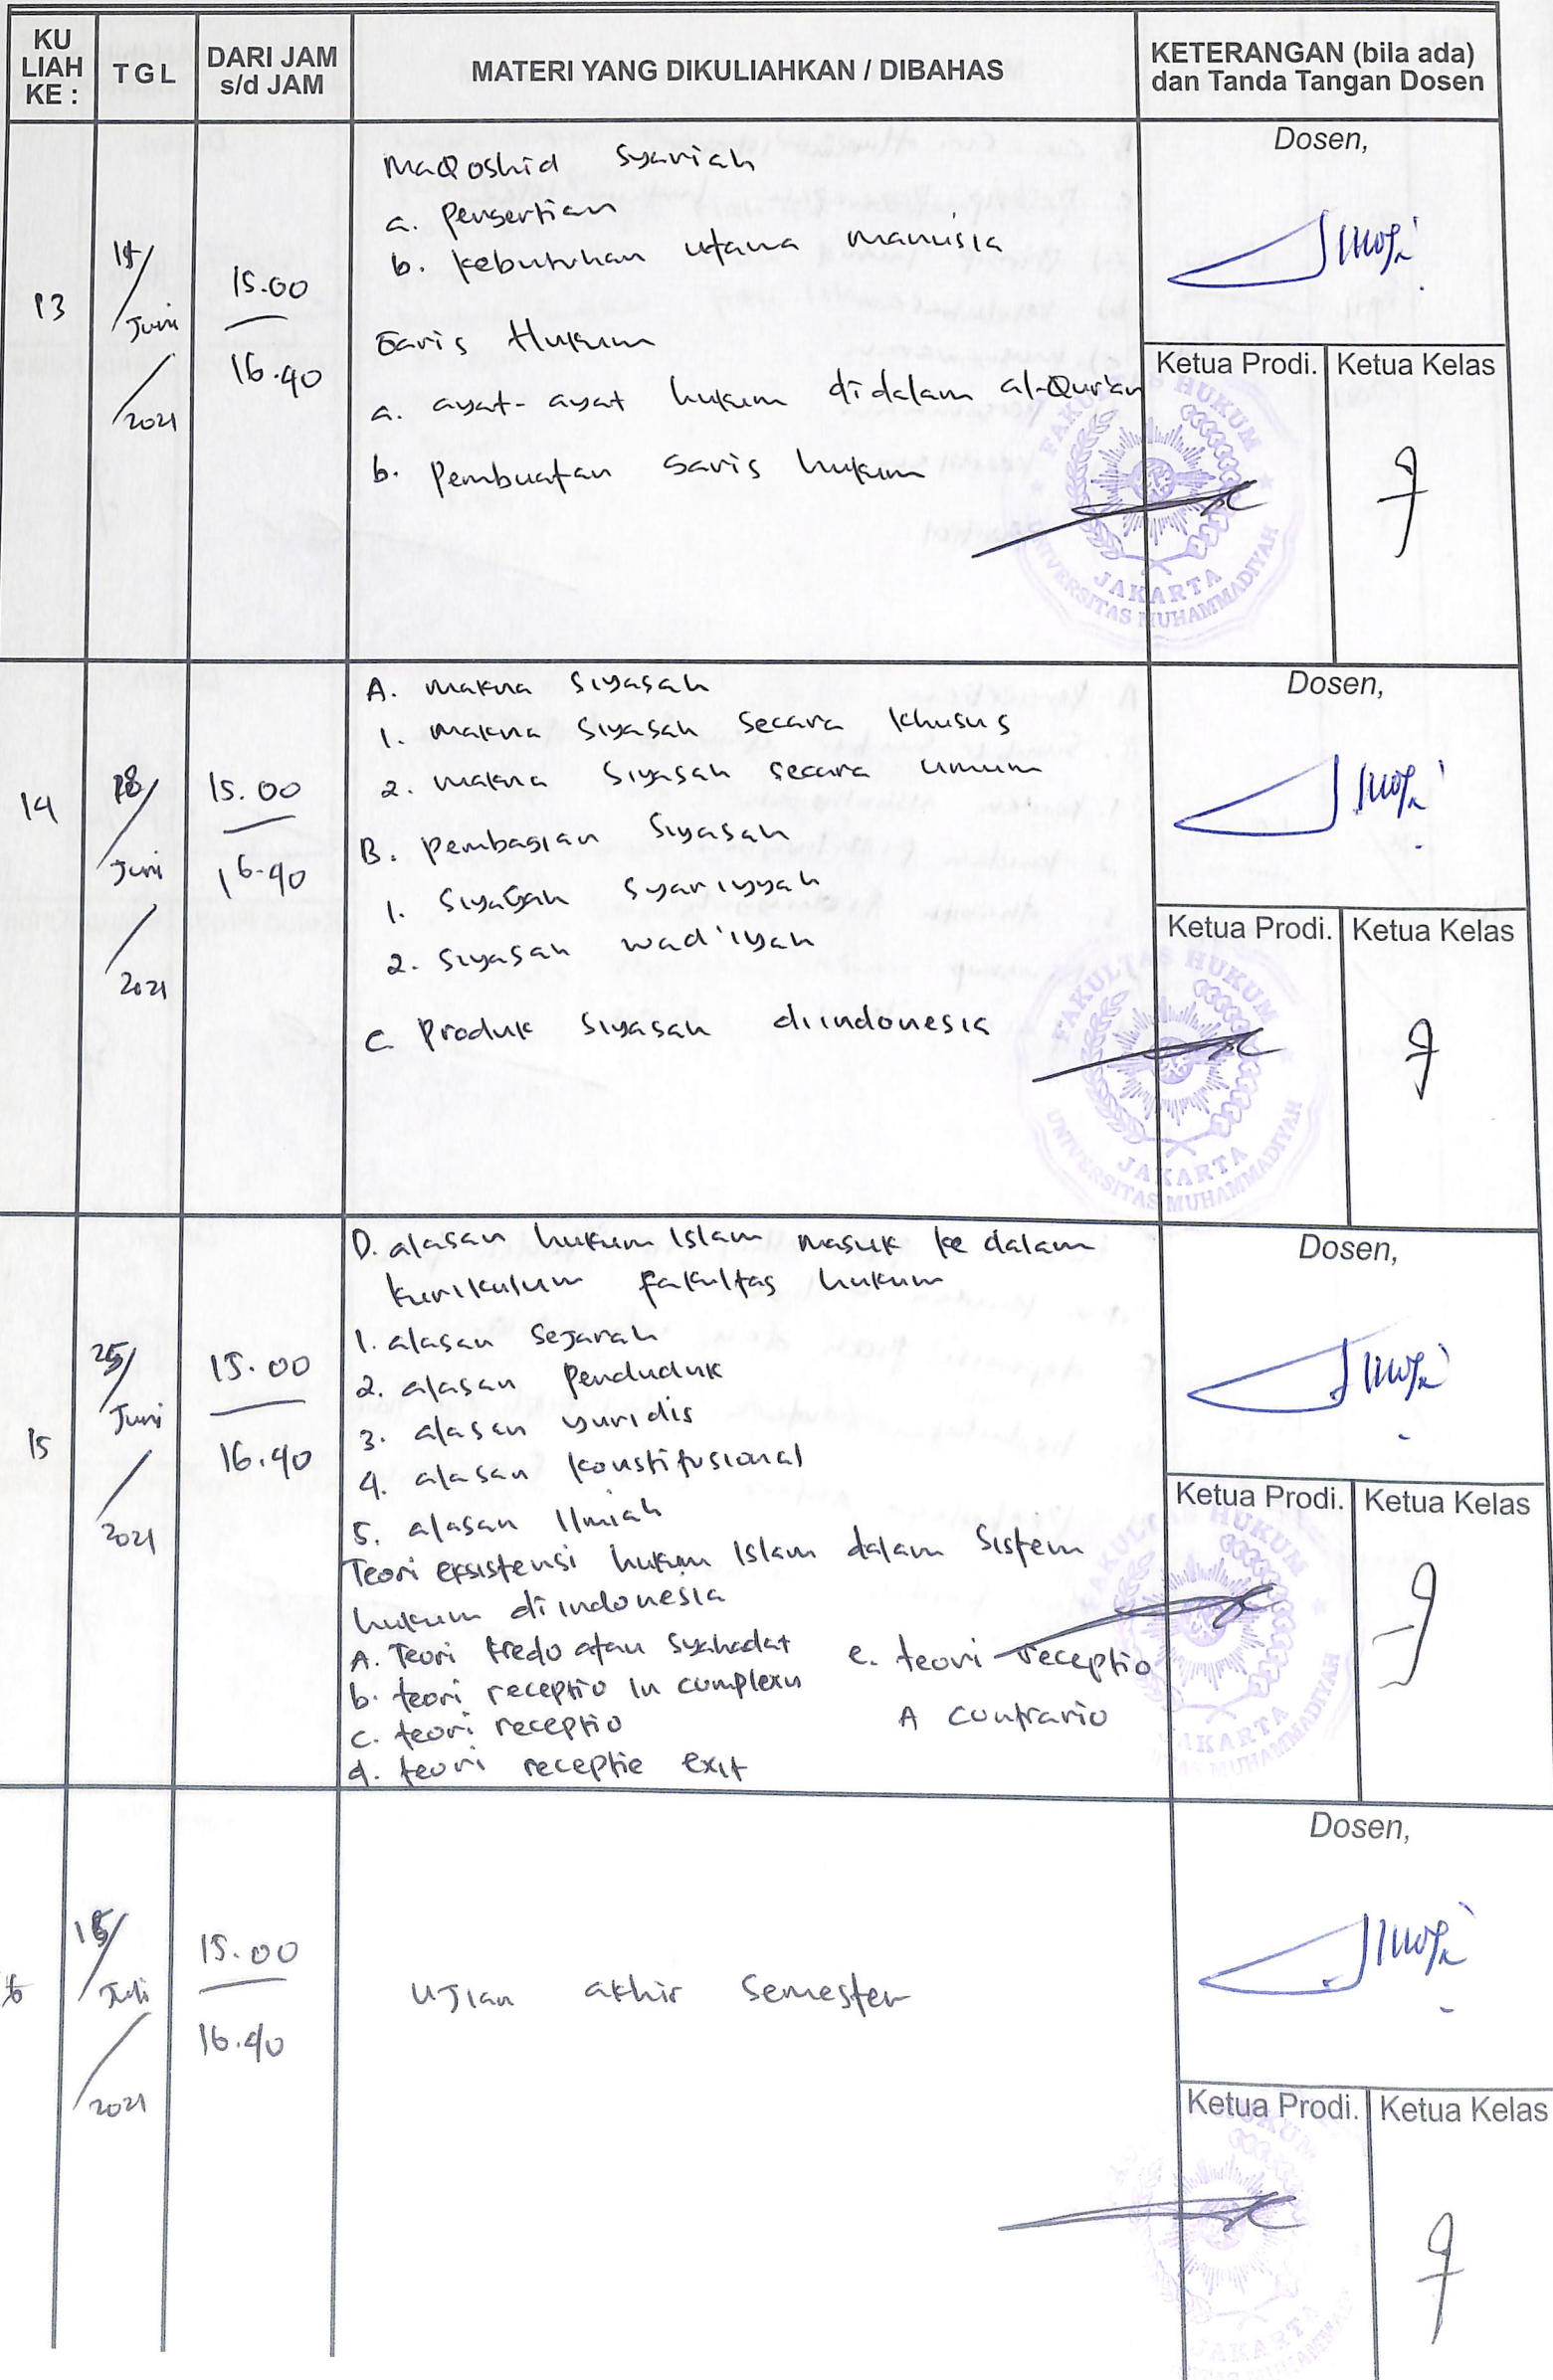 KU
LIAH
KE :
TGL
DARI JAM
s/d JAM
MATERI YANG DIKULIAHKAN / DIBAHAS
KETERANGAN (bila ada)
dan Tanda Tangan Dosen
13
Juni
2021
15.00
16.40
MaQoshid Syariah
a. Pengertian
b. kebutuhan utama manusia
Garis Hukum
a. ayat-ayat hukum didalam al-Qur'an
b. Pembuatan Garis hukum
Dosen,
Ketua Prodi.
Ketua Kelas
FAKULTAS HUKUM
JAKARTA
UNIVERSITAS MUHAMMADIYAH
14
18/
Juni
2021
15.00
16.40
A. Makna Siyasah
1. Makna Siyasah Secara khusus
2. Makna Siyasah secara umum
B. Pembagian Siyasah
1. Siyasah Syariyyah
2. Siyasah wad'iyah
C Produk Siyasah diindonesia
Dosen,
Ketua Prodi.
Ketua Kelas
FAKULTAS HUKUM
JAKARTA
UNIVERSITAS MUHAMMADIYAH
15
25/
Juni
2021
15.00
16.40
D. alasan hukum Islam masuk ke dalam
kurikulum fakultas hukum
1. alasan Sejarah
2. alasan Penduduk
3. alasan yuridis
4. alasan konstitusional
5. alasan Ilmiah
Teori eksistensi hukum Islam dalam Sistem
hukum diindonesia
A. Teori kredo atau Syahadat
b. teori receptio in complexu
c. teori receptio
d. teori receptie exit
e. teori receptio
A contrario
Dosen,
Ketua Prodi.
Ketua Kelas
FAKULTAS HUKUM
JAKARTA
UNIVERSITAS MUHAMMADIYAH
Juli
2021
15.00
16.40
Ujian akhir Semester
Dosen,
Ketua Prodi.
Ketua Kelas
HUKUM
JAKARTA